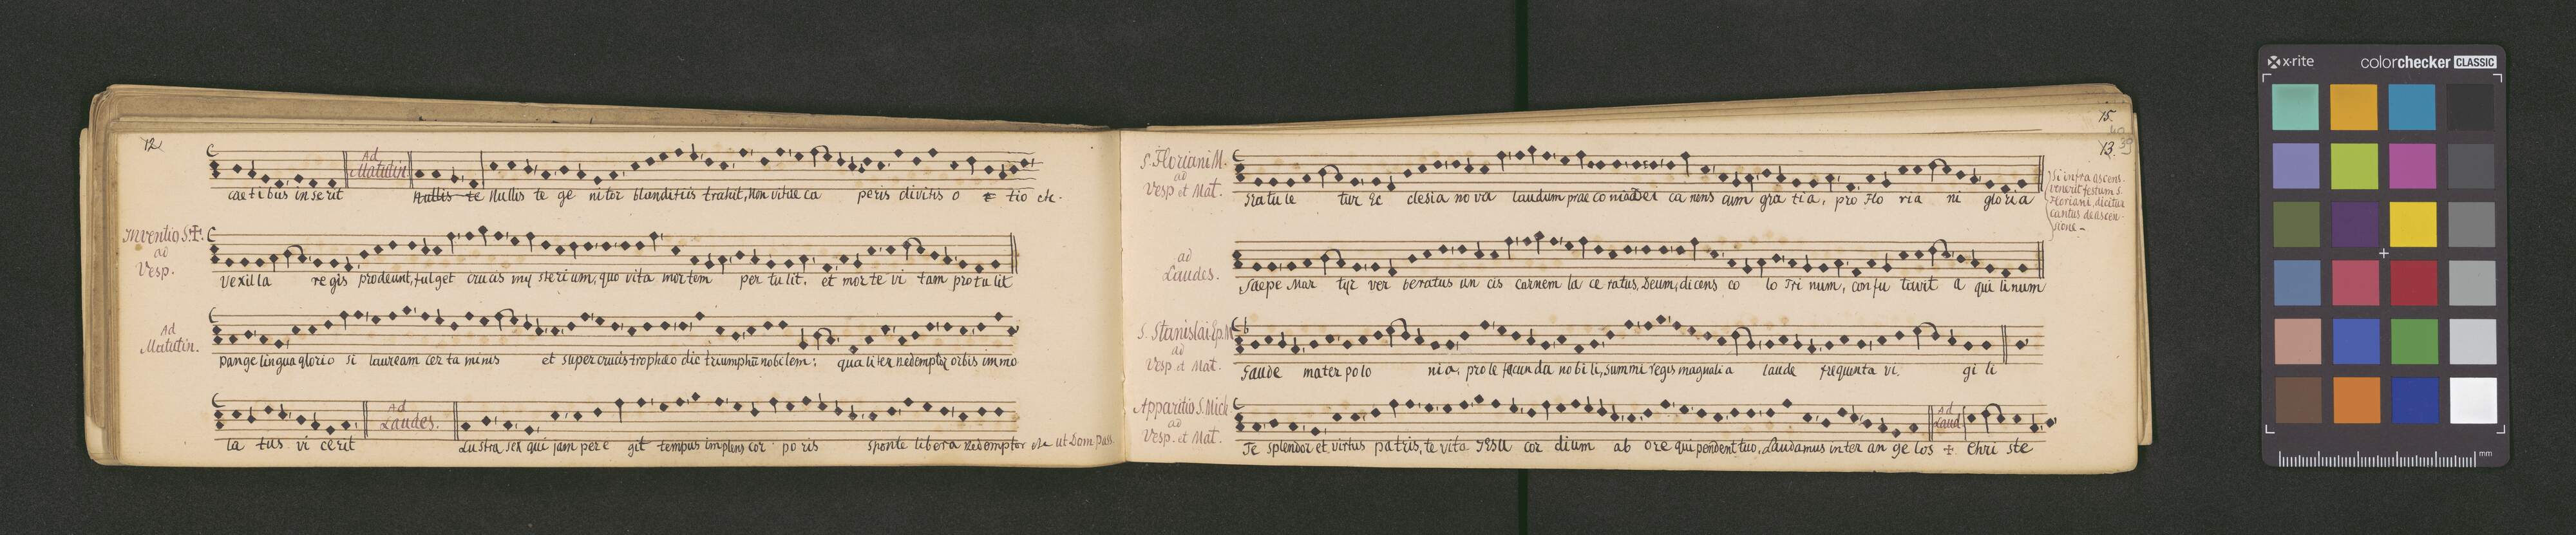 12
Ad
Matutin.
cae ti bus in se rit
Nullis te Nullis te ge nitor blanditiis trahit, Non vitae ca peris divitis o t tio etc.
Inventio S. ✝.
ad
Vesp.
Vexilla regis prodeunt, fulget crucis my sterium, quo vita mortem per tu lit. et mor te vi tam pro tu lit
Ad
Matutin.
Pange lingua glorio si lauream cer ta minis et super crucis trophaeo dic triumphū nobilem: qua li ter redemptor orbis immo
la tus vi cerit
Ad
Laudes.
Lustra sex qui jam pere git tempus implens cor po ris sponte libera Redemptor etc ut Dom Pass
15.
13.
39
S. Floriani M.
ad
Vesp et Mat.
Gra tu le tur Ec clesia no va laudum prae co nia Dei ca nens cum gra tia, pro Flo ria ni glo ri a
Si infra ascens.
venerit festum S.
Floriani, dicitur
cantus de ascen-
sione -
ad
Laudes.
Saepe Mar tyr ver beratus un cis carnem la ce ratus, Deum, dicens co lo Tri num, con fu tavit a qui li num
S. Stanislai Ep. M
ad
Vesp et Mat.
Gaude mater polo nia, prole fecun da no bi li, summi regis magnali a laude frequenta vi. gi li
Apparitio S. Mich
ad
Vesp. et Mat.
Te splendor et virtus patris, te vita JESU cor dium ab ore qui pendent tuo, Laudamus inter an ge los ✝
Ad
Laud.
Chri ste
x-rite
colorchecker CLASSIC
mm